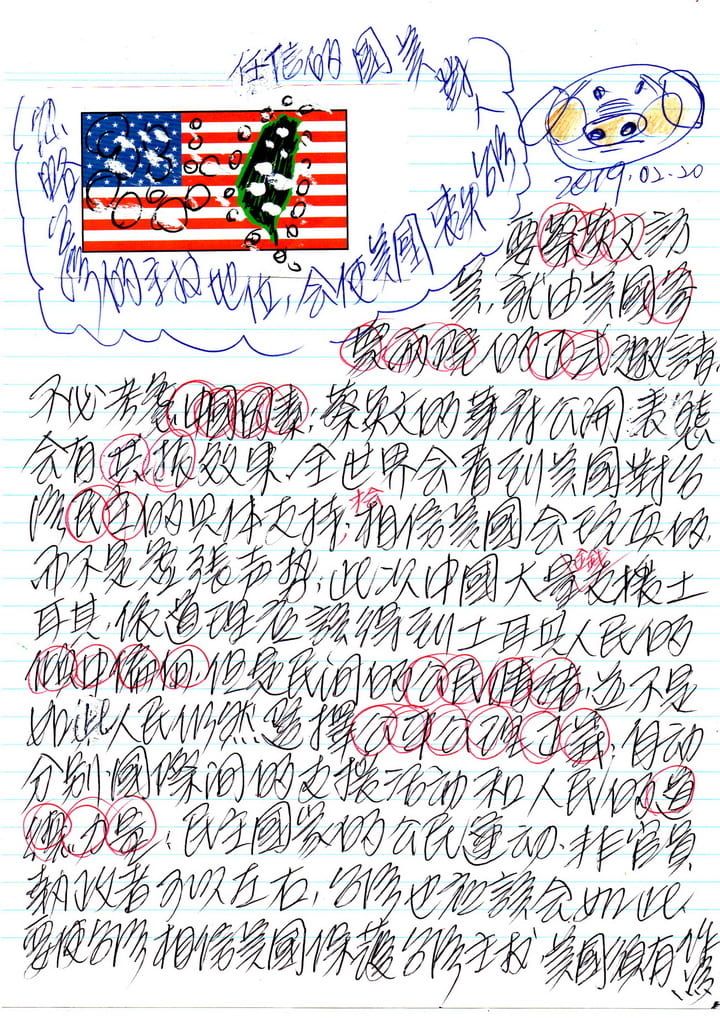 任信的國家、
忽略台灣的主权地位，会使美國喪失台灣
2019.02.20
要蔡英文訪
美，就由美國參
眾兩院的正式邀請，
不必考慮中國因素；蔡英文的華府公開表態
会有效果、全世界会看到美國對台
灣民主的具体支持；相信美國会玩真的，
而不是虛張声势；此次中國大量支援土
耳其，依道理应該得到土耳其人民的
傾中偏向，但是民间的公民情緒，並不是
如此人民仍然選擇公平公理正義；自动
分別國際间的支援活动和人民的道
德力量、民主國家的公民運动、非官員
執政者可以左右，台灣也应該会如此
要使台灣相信美國保護台灣主权，美國須有